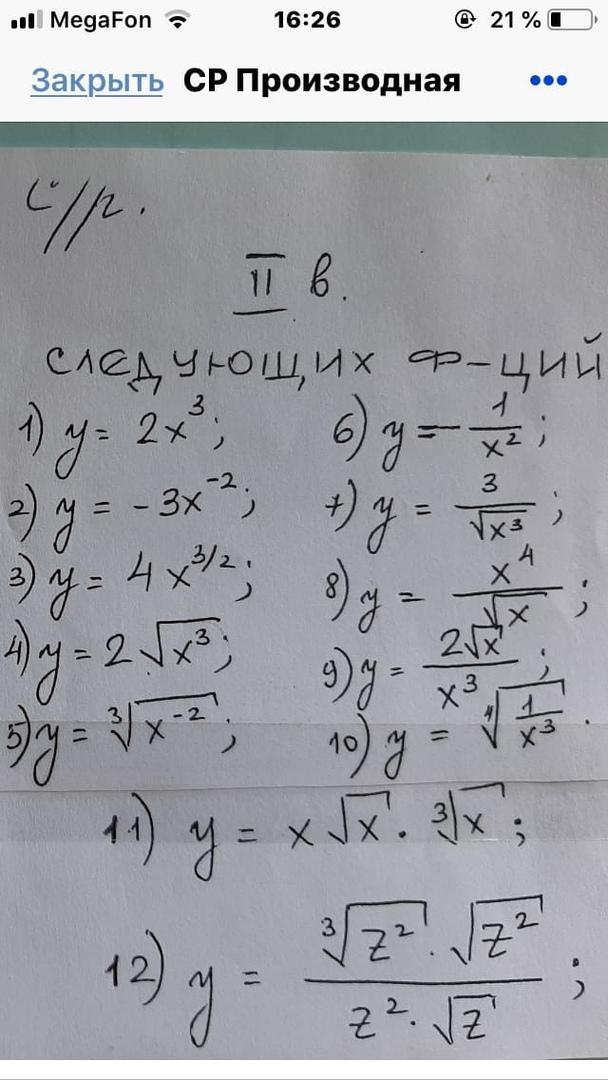 MegaFon 16:26 21 %
Закрыть СР Производная
С/р.
II в.
следующих ф-ций
1) y = 2x³;
2) y = -3x⁻²;
3) y = 4x^{3/2};
4) y = 2√(x³);
5) y = ∛(x⁻²);
6) y = -1/x²;
7) y = 3/√(x³);
8) y = x⁴/√x;
9) y = 2√x/x³;
10) y = ∜(1/x³).
11) y = x√x · ∛x;
12) y = (∛(z²) · √(z²))/(z² · √z);